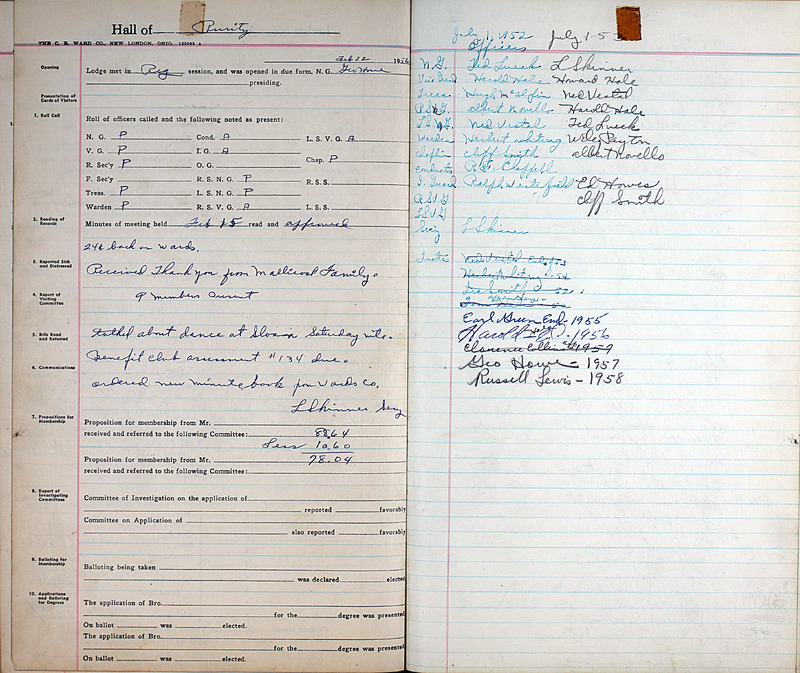 Hall of Purity
THE C. E. WARD CO., NEW LONDON, OHIO.
Feb 22 1956
Opening
Lodge met in Reg session, and was opened in due form, N. G. Geo Howe
presiding.
Presentation of Cards of Visitors
1. Roll Call
Roll of officers called and the following noted as present:
N. G. P Cond. A L. S. V. G. A
V. G. P I. G. A Chap. P
R. Sec'y P O. G.
F. Sec'y R. S. N. G. P R. S. S.
Treas. P L. S. N. G. P
Warden P R. S. V. G. A L. S. S.
2. Reading of Records
Minutes of meeting held Feb 15 read and approved
24¢ back on wards.
3. Reported Sick and Distressed
Received Thank you from Family.
4. Report of Visiting Committee
9 members Present
5. Bills Read and Referred
talked about dance at Sloan Saturday nite.
Benefit club assessment #134 due.
6. Communications
ordered new minute book from Wards Co.
L Skinner Secy
7. Propositions for Membership
Proposition for membership from Mr.
received and referred to the following Committee: 88.64
Less 10.60
Proposition for membership from Mr. 78.04
received and referred to the following Committee:
8. Report of Investigating Committees
Committee of Investigation on the application of
reported favorably
Committee on Application of
also reported favorably
9. Balloting for Membership
Balloting being taken
was declared elected
10. Applications and Balloting for Degrees
The application of Bro.
for the degree was presented
On ballot was elected.
The application of Bro.
for the degree was presented
On ballot was elected.
July 1, 1952 July 1-53
Officers
N.G. Ted Lueck L Skinner
Vice Grand Harold Hale Howard Hale
Treas Hugh McAlpin Ned Vestal
R.S.N.G. Albert Novello Harold Hale
L.S.N.G. Ned Vestal Ted Lueck
Warden Herbert Whiting Wiley Payton
Chaplin Cliff Smith Albert Novello
Conductor R.F. Clappell
I. Guard Ralph Westerfield Ed Howes
R.S.V.G. Cliff Smith
L.S.V.G.
Secy L Skinner
Trustees Ned Vestal 1953
Herbert Whiting 54
Smith 52
Earl Green End. 1955
Harold Hale 1956
Clarence Collins 1959
Geo Howe - 1957
Russell Lewis - 1958